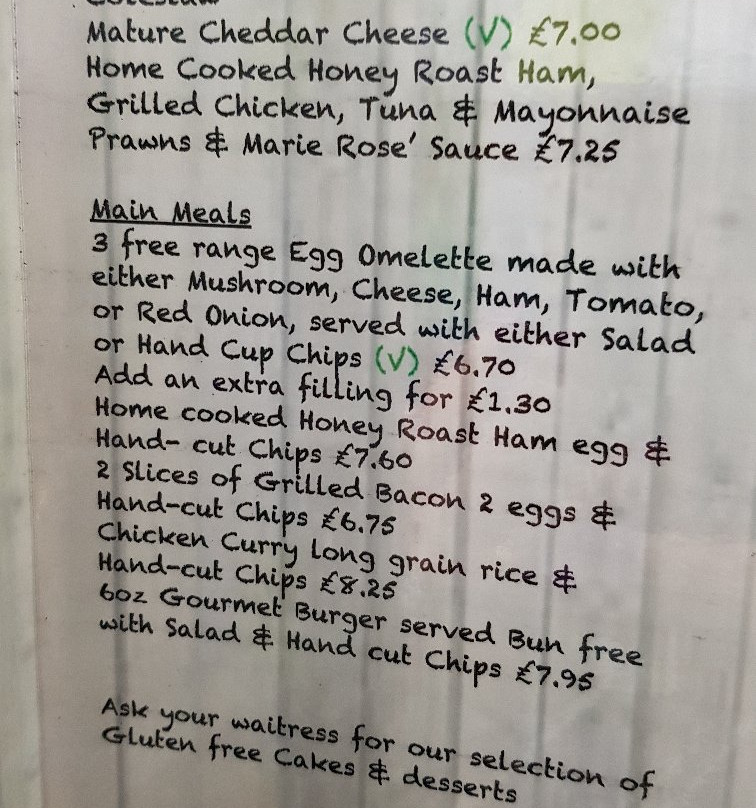 Coleslaw
Mature Cheddar Cheese (V) £7.00
Home Cooked Honey Roast Ham,
Grilled Chicken, Tuna & Mayonnaise
Prawns & Marie Rose' Sauce £7.25
Main Meals
3 free range Egg Omelette made with
either Mushroom, Cheese, Ham, Tomato,
or Red Onion, served with either Salad
or Hand Cup Chips (V) £6.70
Add an extra filling for £1.30
Home cooked Honey Roast Ham egg &
Hand- cut Chips £7.60
2 Slices of Grilled Bacon 2 eggs &
Hand-cut Chips £6.75
Chicken Curry long grain rice &
Hand-cut Chips £8.25
6oz Gourmet Burger served Bun free
with Salad & Hand cut Chips £7.95
Ask your waitress for our selection of
Gluten free Cakes & desserts